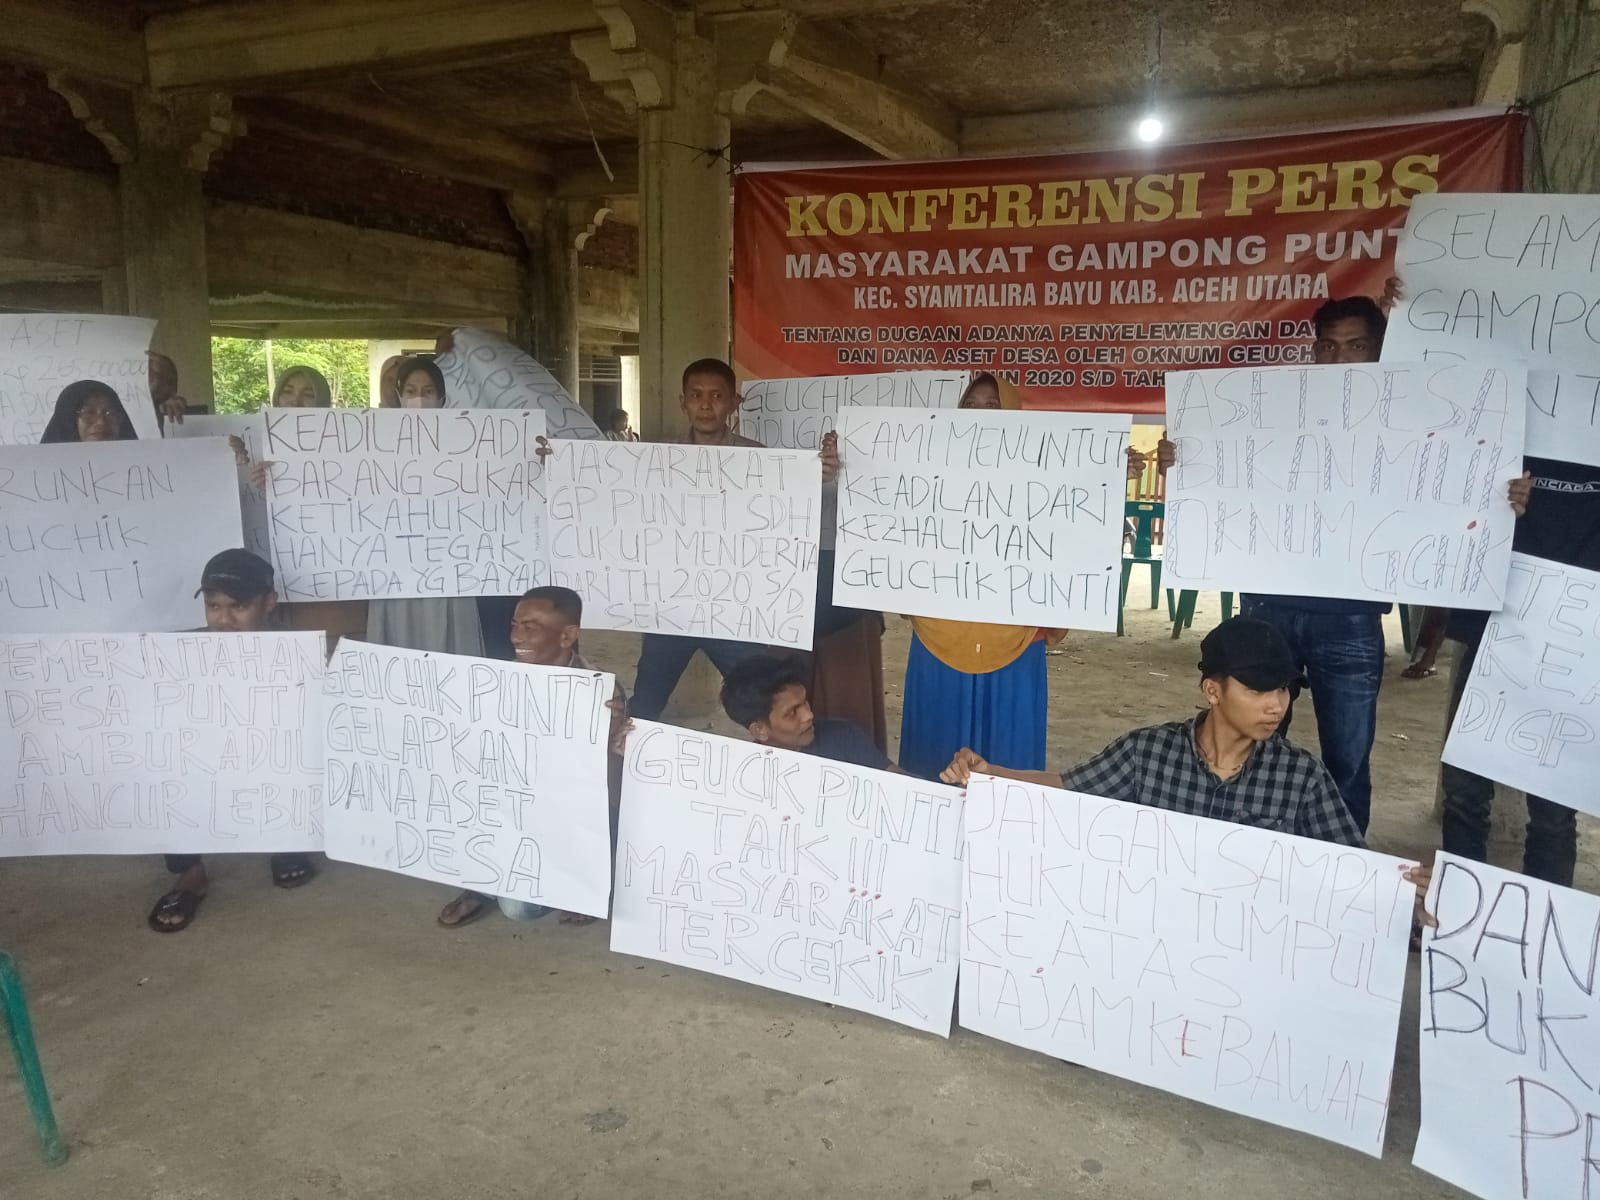 KONFERENSI PERS
MASYARAKAT GAMPONG PUNT
KEC. SYAMTALIRA BAYU KAB. ACEH UTARA
TENTANG DUGAAN ADANYA PENYELEWENGAN DA
DAN DANA ASET DESA OLEH OKNUM GEUCH
2020 S/D TAH
ASET
265000000
RUNKAN
EUCHIK
PUNTI
KEADILAN JADI
BARANG SUKAR
KETIKA HUKUM
HANYA TEGAK
KEPADA YG BAYAR
MASYARAKAT
GP PUNTI SDH
CUKUP MENDERITA
DARI TH. 2020 S/D
SEKARANG
GEUCHIK PUNTI
DIDUGA
KAMI MENUNTUT
KEADILAN DARI
KEZHALIMAN
GEUCHIK PUNTI
ASET.DESA
BUKAN MILIK
OKNUM GCHIK
SELAM
GAMPO
INCIAGA
TE
KE
DI GP
PEMERINTAHAN
DESA PUNTI
AMBURADUL
HANCUR LEBUR
GEUCHIK PUNTI
GELAPKAN
DANA ASET
DESA
GEUCIK PUNTI
TAIK !!!
MASYARAKAT
TERCEKIK
JANGAN SAMPAI
HUKUM TUMPUL
KE ATAS
TAJAM KE BAWAH
DAN
BUK
PR